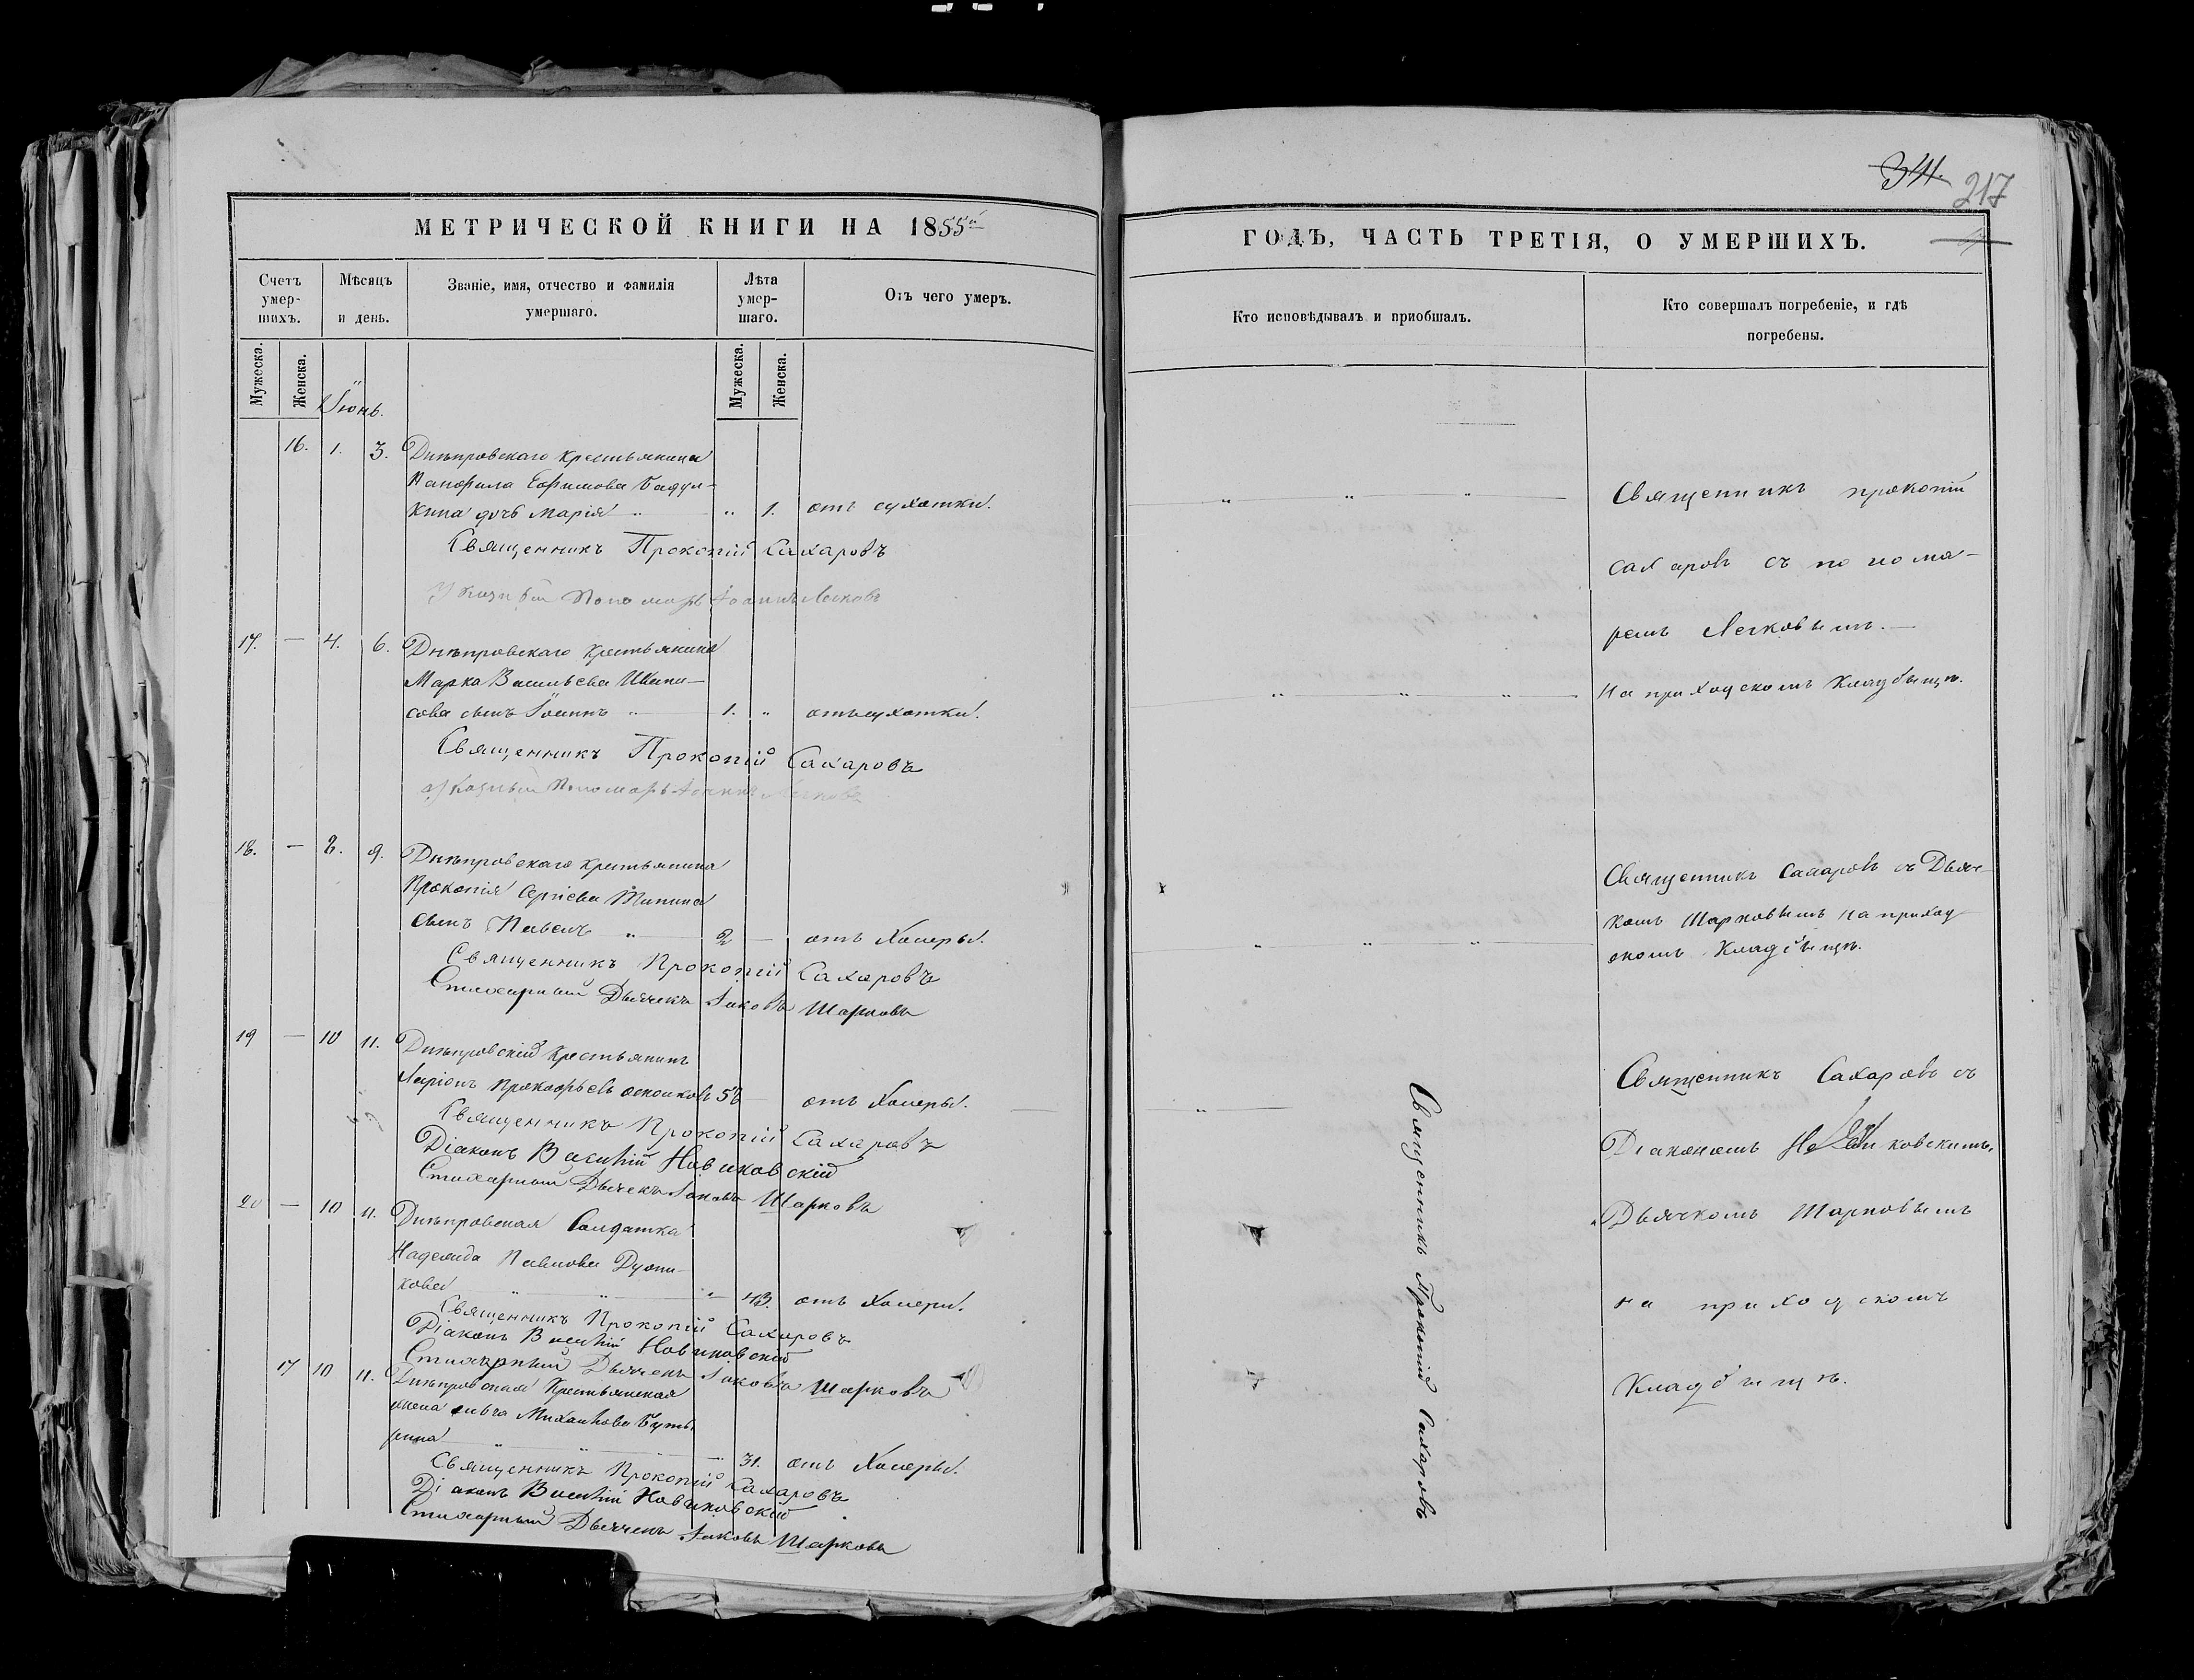 34.
217
МЕТРИЧЕСКОЙ КНИГИ НА 1855й
Счетъ умер-шихъ.
Мѣсяцъ и день.
Званіе, имя, отчество и фамилія
умершаго.
Лѣта умер-шаго.
Отъ чего умеръ.
Мужеска.
Женска.
Мужеска.
Женска.
Іюнь.
16. 1. 3. Днѣпровскаго крестьянина
Панфила Ефимова
кина дочь Марія " 1. отъ сухотки.
Священникъ Прокопій Сахаровъ
Указный Пономарь Іоаннъ Легковъ
17. — 4. 6. Днѣпровскаго крестьянина
Марка Васильева
сова сынъ Іоаннъ 1. " отъ сухотки.
Священникъ Прокопій Сахаровъ
Указный Пономарь Іоаннъ Легковъ
18. — 8. 9. Днѣпровскаго крестьянина
Прокопія Сергіева
сынъ Павелъ " 2 — отъ Холеры.
Священникъ Прокопій Сахаровъ
Стихарный Дьячекъ Іаковъ Шарковъ
19 — 10 11. Днѣпровскій крестьянинъ
Ларіонъ Прокофьевъ отъ Холеры.
Священникъ Прокопій Сахаровъ
Діаконъ Василій Новиковскій
Стихарный Дьячекъ Іаковъ Шарковъ
20 — 10 11. Днѣпровская Солдатка
Надежда Павлова
кова " 43. отъ Холеры.
Священникъ Прокопій Сахаровъ
Діаконъ Василій Новиковскій
Стихарный Дьячекъ Іаковъ Шарковъ
17 10 11. Днѣпровская Крестьянская
жена Михайлова
рина 31. отъ Холеры.
Священникъ Прокопій Сахаровъ
Діаконъ Василій Новиковскій
Стихарный Дьячекъ Іаковъ Шарковъ
ГОДЪ, ЧАСТЬ ТРЕТІЯ, О УМЕРШИХЪ.
Кто исповѣдывалъ и приобщалъ.
Кто совершалъ погребеніе, и гдѣ
погребены.
Священникъ прокопій
Сахаровъ съ понома-
ремъ Легковымъ.
На приходскомъ кладбищѣ.
Священникъ Сахаровъ съ Дьяч-
комъ Шарковымъ на приход
скомъ Кладбищѣ.
Священникъ Сахаровъ съ
Діакономъ Новиковскимъ,
Дьячкомъ Шарковымъ
на приходскомъ
Кладбищѣ.
Священникъ Прокопій Сахаровъ